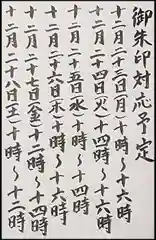 御朱印対応予定
十二月二十三日(月)十時～十六時
十二月二十四日(火)十四時～十六時
十二月二十五日(水)十時～十四時
十二月二十六日(木)十時～十六時
十二月二十七日(金)十二時～十四時
十二月二十八日(土)十時～十二時